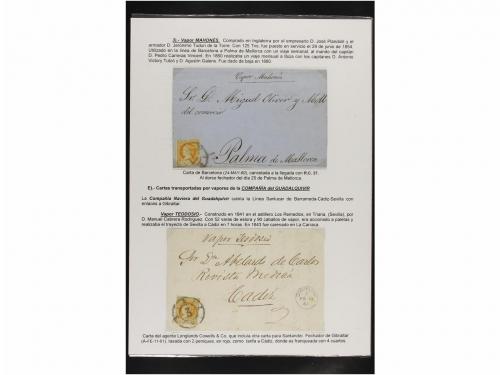 J).- Vapor MAHONÉS. Comprado en Inglaterra por el empresario D. José Plandolit y el
armador D. Jerónimo Tudurí de la Torre. Con 125 Tns. fue puesto en servicio el 29 de junio de 1854.
Utilizado en la línea de Barcelona a Palma de Mallorca con un viaje semanal, al mando del capitán
D. Pedro Carreras Vincent. En 1880 realizaba un viaje mensual a Ibiza con los capitanes D. Antonio
Victory Tutzó y D. Agustín Galens. Fue dado de baja en 1890.
Vapor Mahonés
Sr. D. Miguel Oliver y Moll
del comercio
Palma de Mallorca
Carta de Barcelona (24-MAY-60), cancelada a la llegada con R.C. 31.
Al dorso fechador del día 25 de Palma de Mallorca.
E).- Cartas transportadas por vapores de la COMPAÑÍA del GUADALQUIVIR
La Compañía Naviera del Guadalquivir cubría la Línea Sanlucar de Barrameda-Cádiz-Sevilla con
enlaces a Gibraltar.
Vapor TEODOSIO.- Construido en 1841 en el astillero Los Remedios, en Triana (Sevilla), por
D. Manuel Cabrera Rodríguez. Con 52 varas de eslora y 90 caballos de vapor, era accionado a paletas y
realizaba el trayecto de Sevilla a Cádiz en 7 horas. En 1843 fue carenado en La Carraca.
Vapor Teodosio
Sor Dn. Abelardo de Carlos
Revista Medica
Cadiz
Carta del agente Longlands Cowells & Co. que incluía otra carta para Santander. Fechador de Gibraltar
(A-FE-11-61), tasada con 2 peniques, en rojo, como tarifa a Cádiz, donde es franqueada con 4 cuartos.